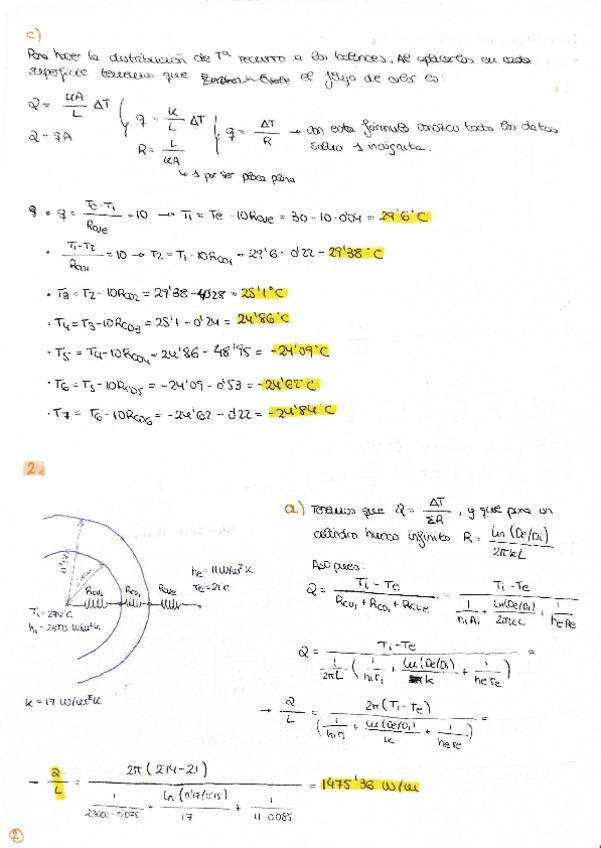 c)
Para hacer la distribución de Tª recurro a los balances. Al aplicarlos en cada
superficie tenemos que el flujo de calor es:
Q = kA/L ΔT
Q = qA
q = k/L ΔT
R = L/kA
q = ΔT/R → con esta fórmula conozco todos los datos
salvo 1 incógnita.
↳ 1 por ser placa plana
q • q = (Te - T1)/Rcve = 10 → T1 = Te - 10Rcve = 30 - 10·0'04 = 29'6°C
• (T1-T2)/Rcd1 = 10 → T2 = T1 - 10Rcd1 = 29'6 - 0'22 = 29'38°C
• T3 = T2 - 10Rcd2 = 29'38 - 4'28 = 25'1°C
• T4 = T3 - 10Rcd3 = 25'1 - 0'24 = 24'86°C
• T5 = T4 - 10Rcd4 = 24'86 - 48'95 = -24'09°C
• T6 = T5 - 10Rcd5 = -24'09 - 0'53 = -24'62°C
• T7 = T6 - 10Rcd6 = -24'62 - 0'22 = -24'84°C
2.
a) Tenemos que Q = ΔT/ΣR, y que para un
cilindro hueco infinito R = ln(De/Di)/2πkL
Así pues:
Q = (Ti - Te)/(Rcvi + Rcd1 + Rcve) = (Ti - Te)/(1/hiAi + ln(De/Di)/2πkL + 1/heAe)
Q = (Ti - Te)/(1/2πL (1/hiri + ln(De/Di)/k + 1/here)) =
→ Q/L = 2π(Ti - Te)/(1/hiri + ln(De/Di)/k + 1/here) =
he = 11 W/m²K
Te = 21°C
Rcvi Rcd1 Rcve
Ti = 274°C
k = 17 W/m²K
→ Q/L = 2π(274-21)/(1/23000·0.075 + ln(0'17/0'15)/17 + 1/11·0.085) = 1475'36 W/m
2